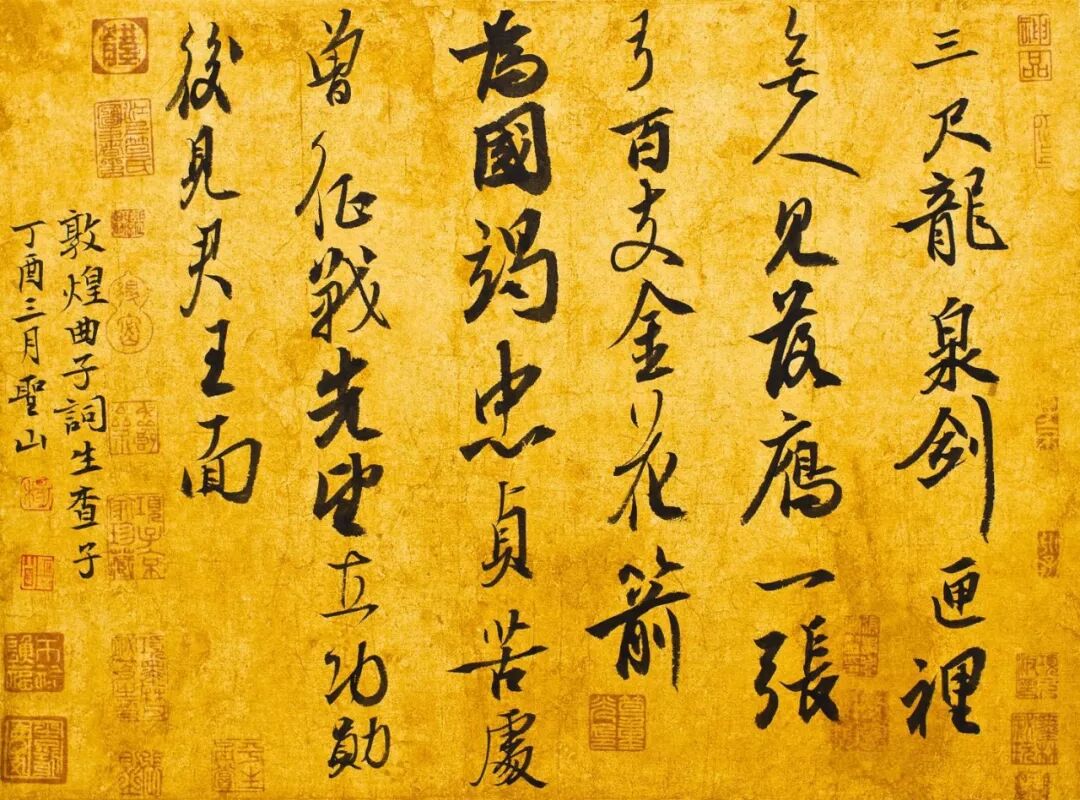 三尺龍泉劍匣裡
無人見落鴈一張
弓百支金花箭
為國竭忠貞苦處
曾征戰先望立功勛
後見君王面
敦煌曲子詞生查子
丁酉三月聖山
神品
項子京家珍藏